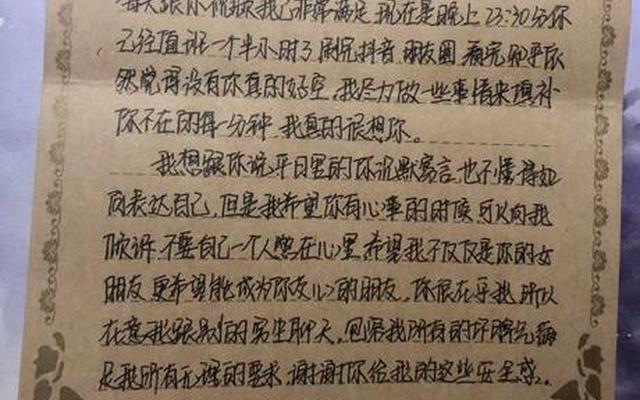 每天跟你视频我已非常满足,现在是晚上23:30分你
已经值班一个半小时了,刷完抖音,朋友圈,看完和平依
然觉得没有你真的好空。我尽力做一些事情来填补
你不在的每一分钟,我真的很想你。
我想跟你说平日里的你沉默寡言,也不懂得如
何表达自己,但是我希望你有心事的时候可以向我
倾诉,不要自己一个人憋在心里,希望我不仅仅是你的女
朋友,更希望能成为你交心的朋友。你很在乎我,所以
在意我跟别的男生聊天,包容我所有的坏脾气,满
足我所有无理的要求,谢谢你给我的这些安全感。